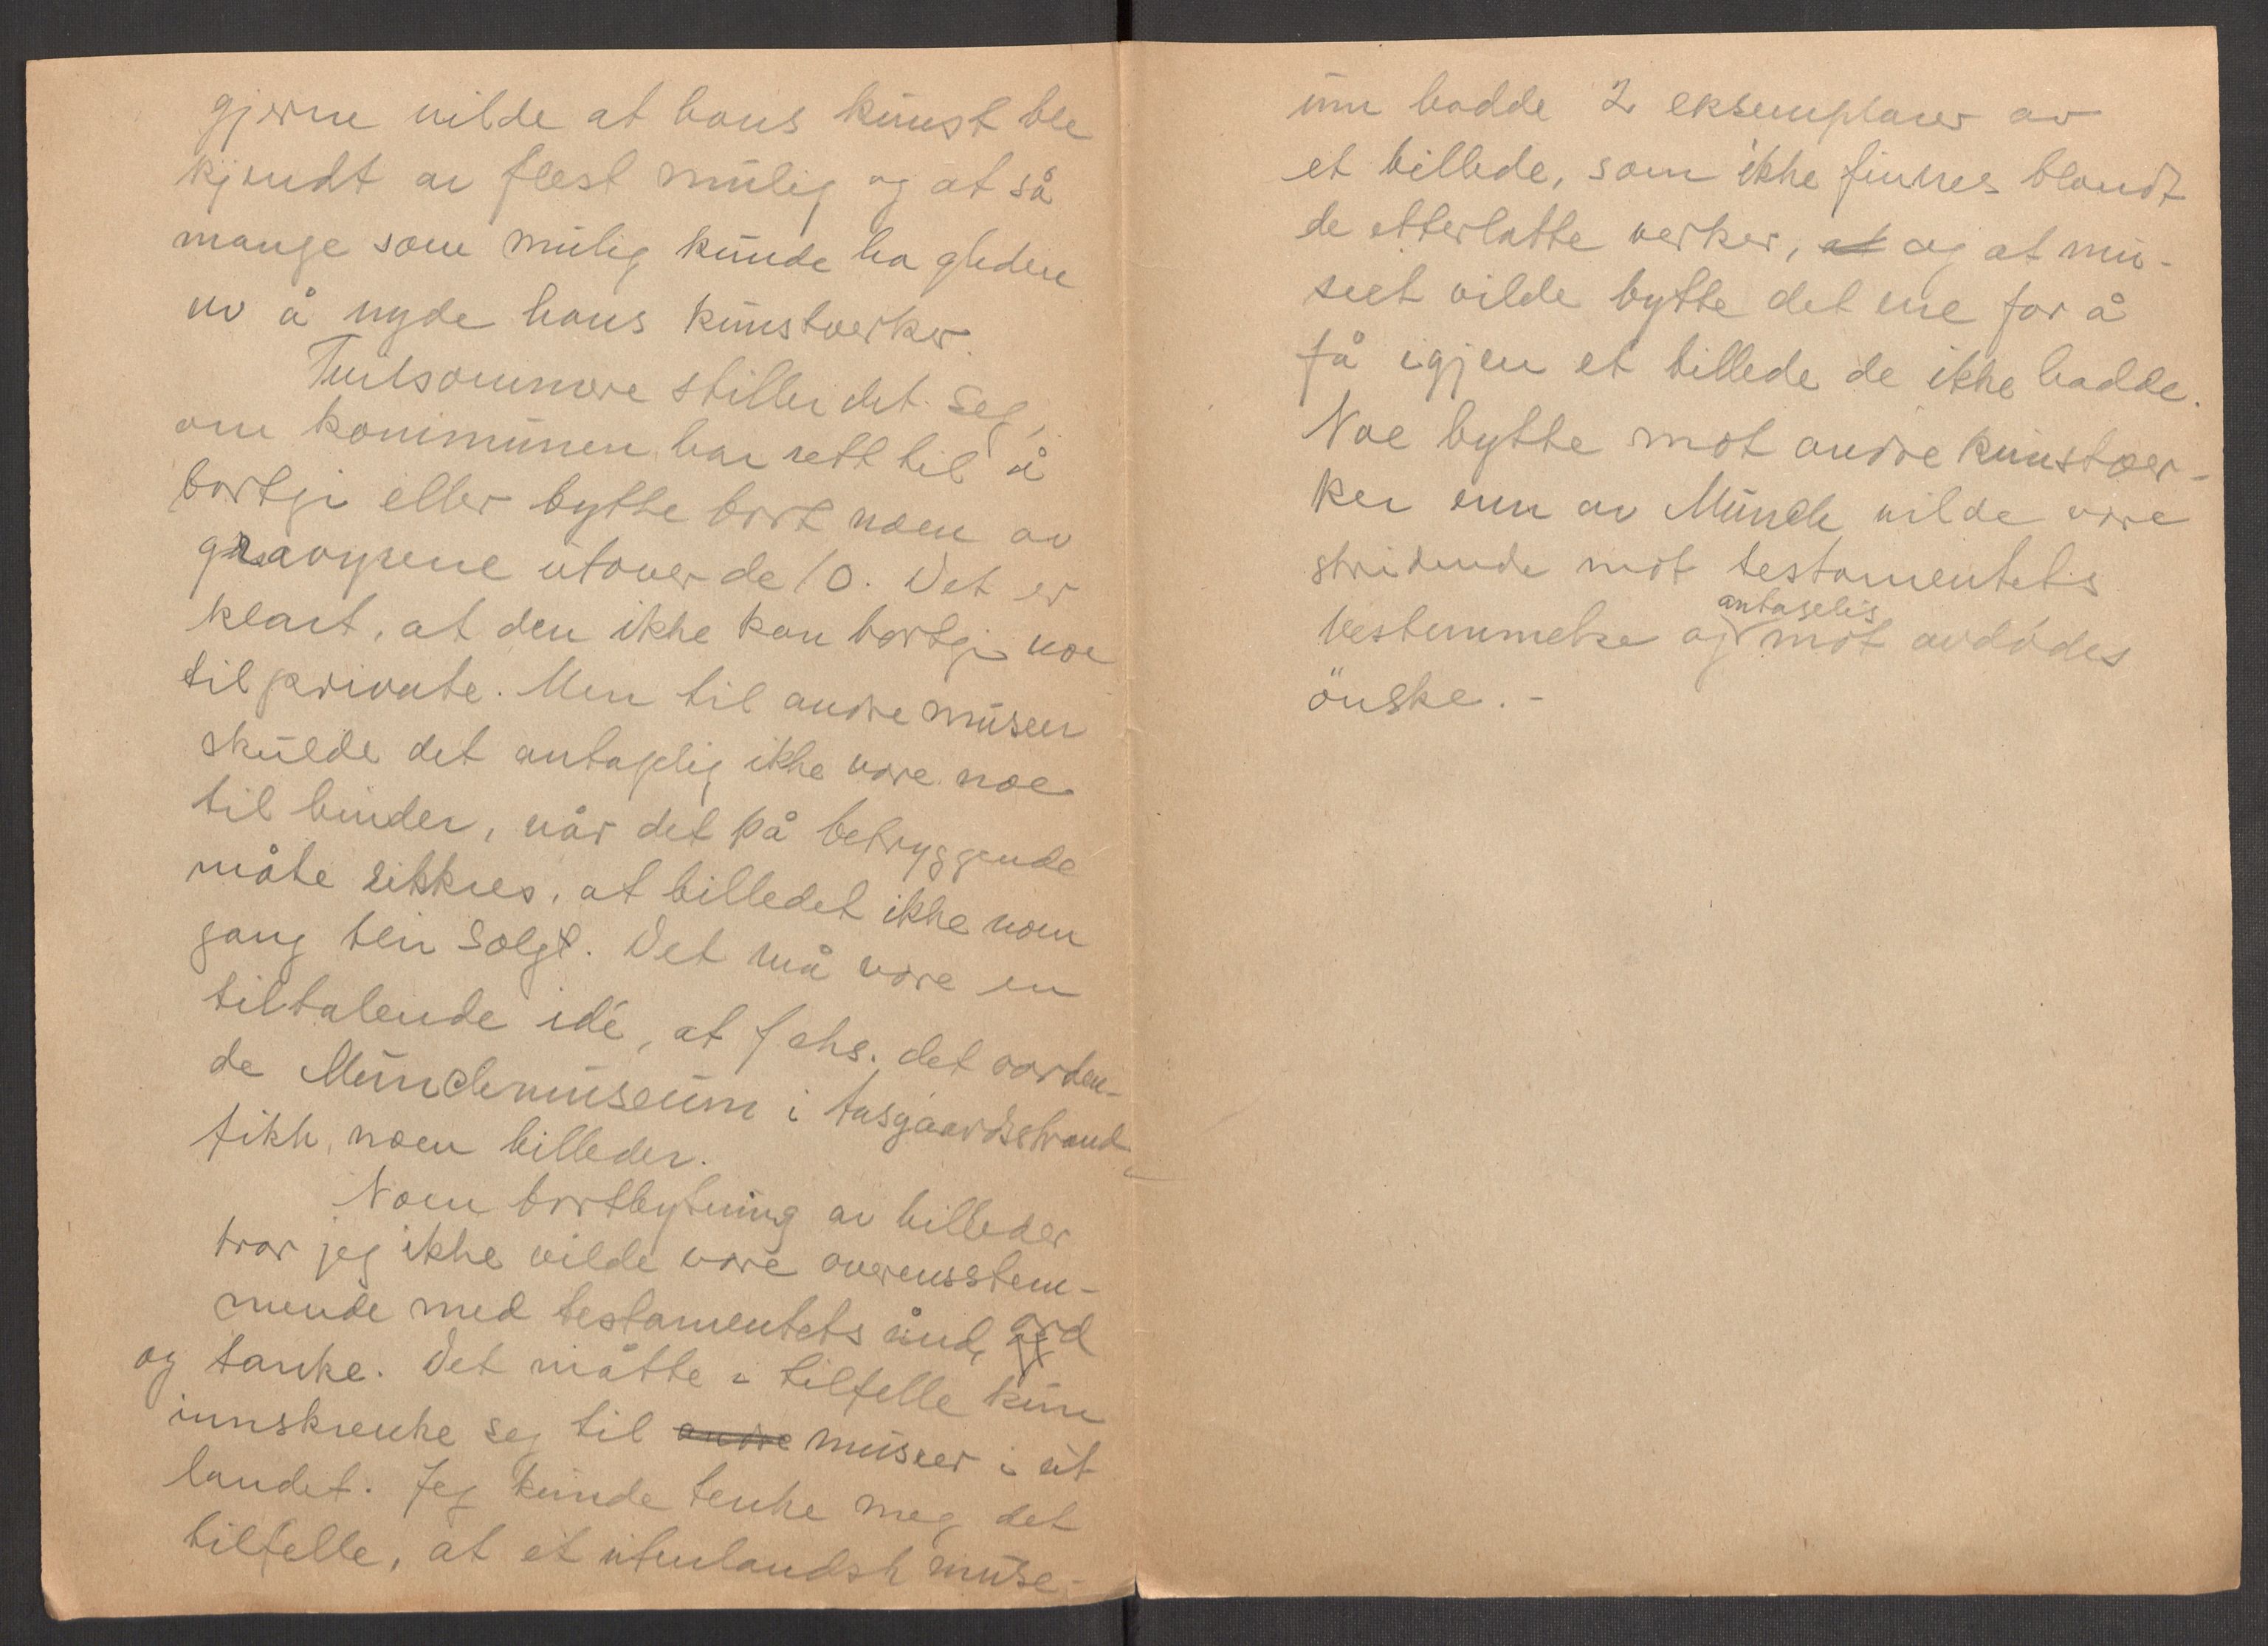 gjerne vilde at hans kunst ble
kjendt av flest mulig og at så
mange som mulig kunde ha gleden
av å nyde hans kunstverker.
Tvilsommere stiller det seg,
om kommunen har rett til å
bortgi eller bytte bort noen av
gravyrene utover de 10. Det er
klart, at den ikke kan bortgi noe
til private. Men til andre museer
skulde det antagelig ikke være noe
til hinder, når det på betryggende
måte sikkres, at billedet ikke noen
gang blir solgt. Det må være en
tiltalende idé, at f eks. det vorden-
de Munchmuseum i Aasgaardsstrand
fikk noen billeder.
Noen bortbytning av billeder
tror jeg ikke vilde være overensstem-
mende med testamentets ånd, ord
og tanke. Det måtte i tilfelle kun
innskrenke seg til andre museer i ut
landet. Jeg kunde tenke meg det
tilfelle, at et utenlandsk muse-
um hadde 2 eksemplarer av
et billede, som ikke finnes blandt
de etterlatte verker, at og at mu-
seet vilde bytte det ene for å
få igjen et billede de ikke hadde.
Noe bytte mot andre kunstver-
ker enn av Munch vilde være
stridende mot testamentets
antagelig
bestemmelse og mot avdødes
önske. -